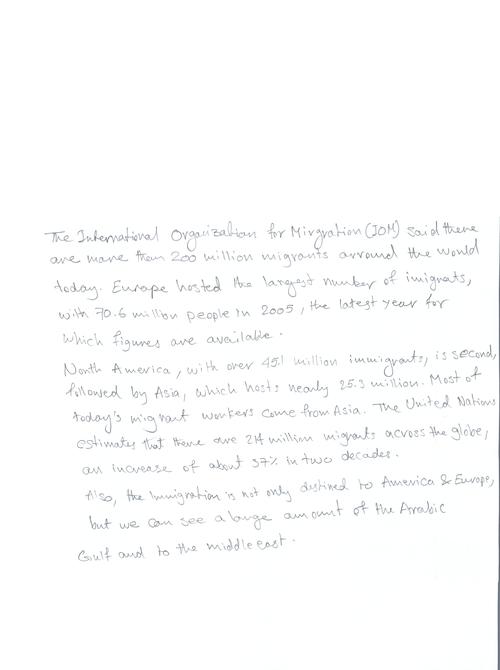 The International Organization for Mirgration (IOM) said there
are more then 200 million migrants arround the world
today. Europe hosted the largest number of imigrats,
with 70.6 million people in 2005, the latest year for
which figures are available.
North America, with over 45.1 million immigrants, is second,
followed by Asia, which hosts nearly 25.3 million. Most of
today's migrant workers come from Asia. The United Nations
estimates that there are 214 million migrants across the globe,
an increase of about 37% in two decades.
Also, the Immigration is not only destined to America & Europe,
but we can see a large amount of the Arabic
Gulf and to the middle east.